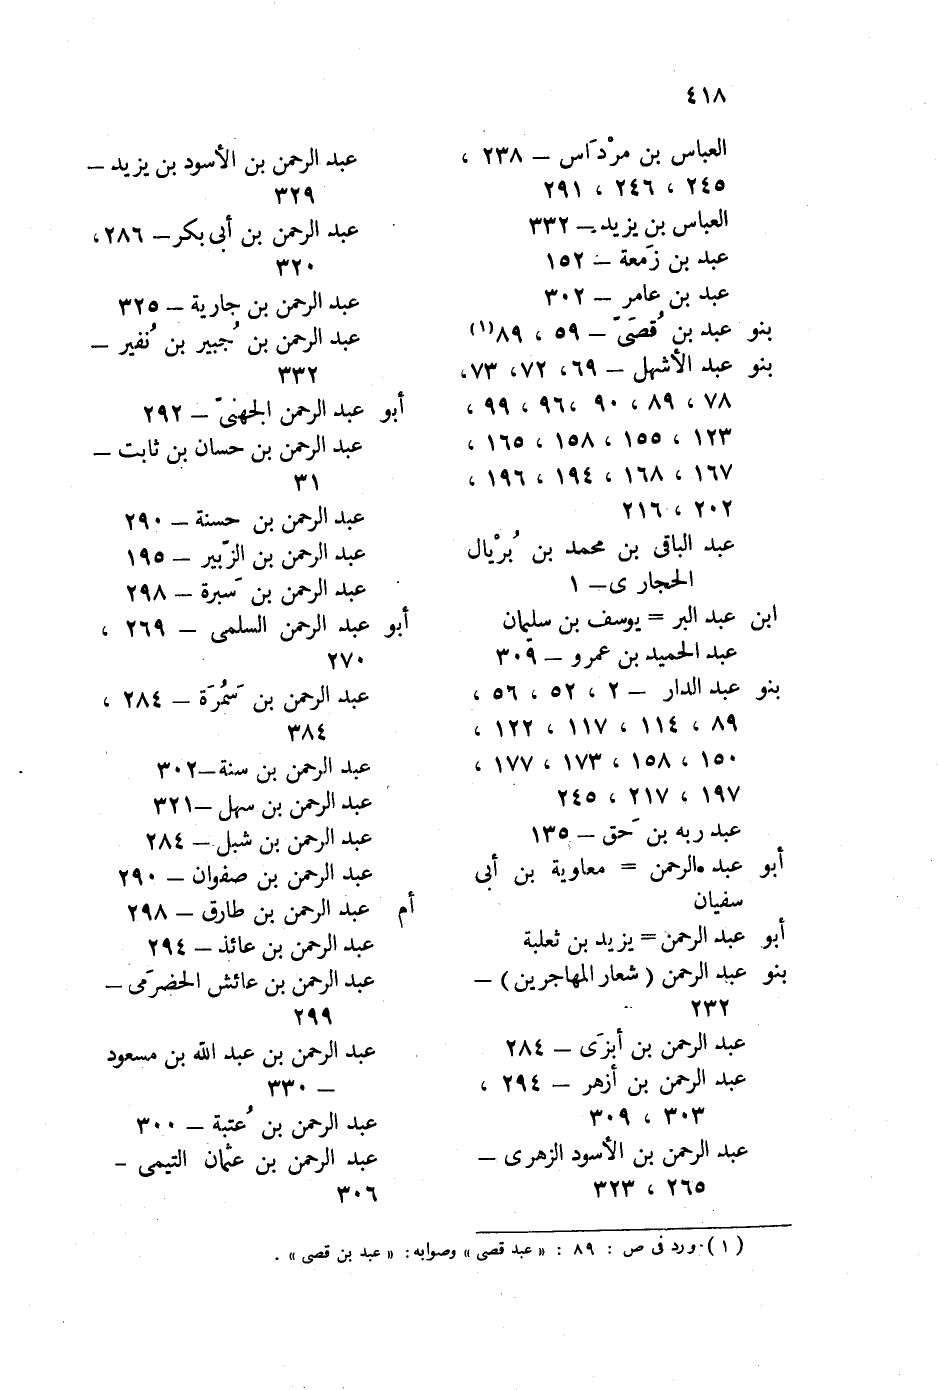 ٤١٨
العباس بن مرْدَاس – ٢٣٨ ،
٢٤٥ ، ٢٤٦ ، ٢٩١
العباس بن يزيد – ٣٣٢
عبد بن زَمعة – ١٥٢
عبد بن عامر – ٣٠٢
بنو عبد بن قُصَىّ – ٥٩ ، ٨٩(١)
بنو عبد الأشهل – ٦٩ ، ٧٢ ، ٧٣ ،
٧٨ ، ٨٩ ، ٩٠ ، ٩٦ ، ٩٩ ،
١٢٣ ، ١٥٥ ، ١٥٨ ، ١٦٥ ،
١٦٧ ، ١٦٨ ، ١٩٤ ، ١٩٦ ،
٢٠٢ ، ٢١٦
عبد الباقى بن محمد بن بُرْيال
الحجارى – ١
ابن عبد البر = يوسف بن سليمان
عبد الحميد بن عمرو – ٣٠٩
بنو عبد الدار – ٢ ، ٥٢ ، ٥٦ ،
٨٩ ، ١١٤ ، ١١٧ ، ١٢٢ ،
١٥٠ ، ١٥٨ ، ١٧٣ ، ١٧٧ ،
١٩٧ ، ٢١٧ ، ٢٤٥
عبد ربه بن حَق – ١٣٥
أبو عبد الرحمن = معاوية بن أبى
سفيان
أبو عبد الرحمن = يزيد بن ثعلبة
بنو عبد الرحمن ( شعار المهاجرين ) –
٢٣٢
عبد الرحمن بن أبزَى – ٢٨٤
عبد الرحمن بن أزهر – ٢٩٤ ،
٣٠٣ ، ٣٠٩
عبد الرحمن بن الأسود الزهرى –
٢٦٥ ، ٣٢٣
عبد الرحمن بن الأسود بن يزيد –
٣٢٩
عبد الرحمن بن أبى بكر – ٢٨٦ ،
٣٢٠
عبد الرحمن بن جارية – ٣٢٥
عبد الرحمن بن جُبير بن نُفير –
٣٣٢
أبو عبد الرحمن الجهنىّ – ٢٩٢
عبد الرحمن بن حسان بن ثابت –
٣١
عبد الرحمن بن حسنة – ٢٩٠
عبد الرحمن بن الزّبير – ١٩٥
عبد الرحمن بن سَبرة – ٢٩٨
أبو عبد الرحمن السلمى – ٢٦٩ ،
٢٧٠
عبد الرحمن بن سَمُرَة – ٢٨٤ ،
٣٨٤
عبد الرحمن بن سنة – ٣٠٢
عبد الرحمن بن سهل – ٣٢١
عبد الرحمن بن شبل – ٢٨٤
عبد الرحمن بن صفوان – ٢٩٠
أم عبد الرحمن بن طارق – ٢٩٨
عبد الرحمن بن عائذ – ٢٩٤
عبد الرحمن بن عائش الحضرَمى –
٢٩٩
عبد الرحمن بن عبد الله بن مسعود
– ٣٣٠
عبد الرحمن بن عُتبة – ٣٠٠
عبد الرحمن بن عثمان التيمى –
٣٠٦
(١) ورد فى ص : ٨٩ : « عبد قصى » وصوابه : « عبد بن قصى » .